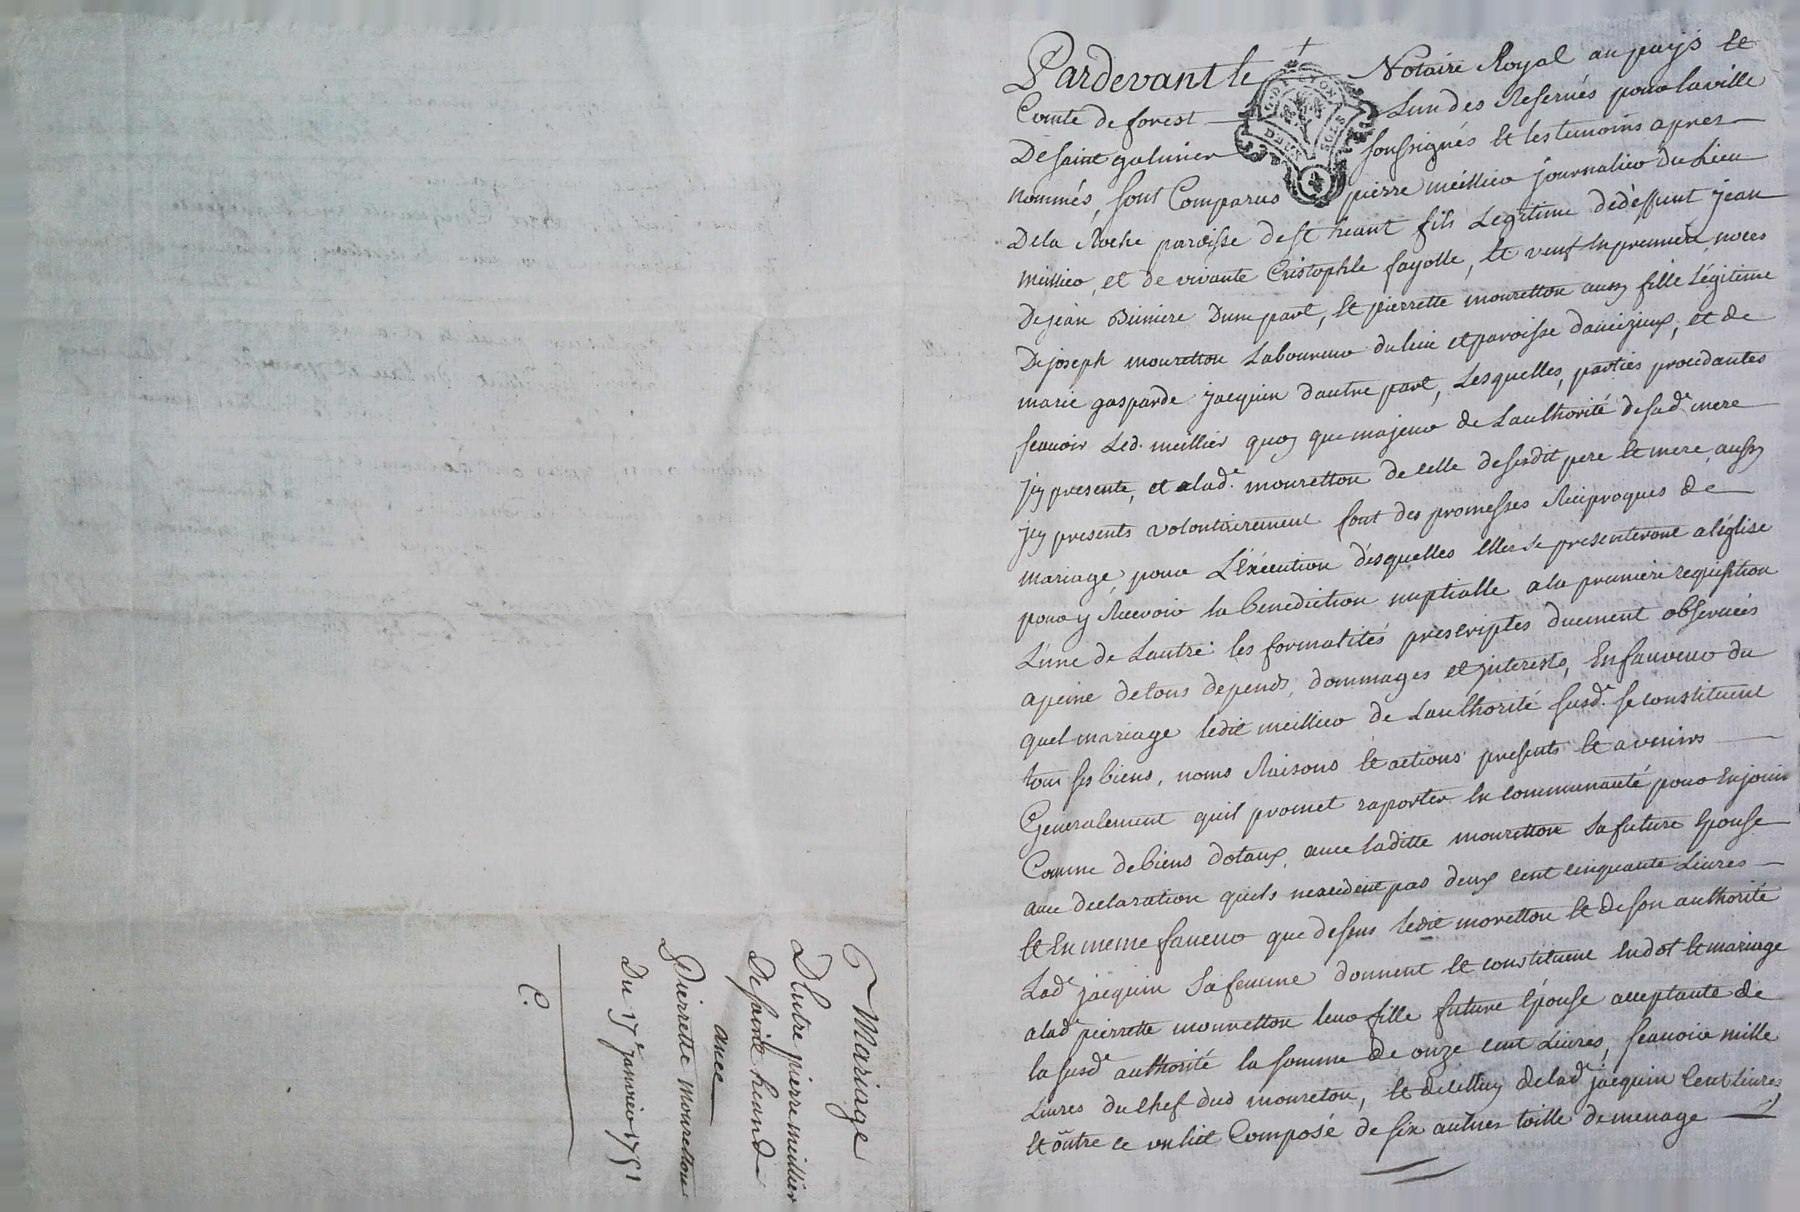 Mariage
Dentre pierre meillier
De saint heand
avec
Pierrette mouretton
Du 17e janvier 1751
C.
Pardevant le Notaire Royal au pays et
Comté de forest Lun des Reservés pour la ville
De saint galmier soussignés et les temoins apres
nommés, sont Comparus pierre meillier journalier du Lieu
De la Roche paroisse de st heant fils Legitime de deffunt jean
meillier, et de vivante Cristophle fayolle, et veuf en premiere noces
De jean dune part, et pierrette mouretton aussy fille légitime
De joseph mouretton Laboureur du lieu et paroisse daveizieux, et de
marie gasparde jacquin dautre part, Lesquelles, parties procedantes
scavoir Led. meillier quoy que majeur de Lauthorité de sade mere
jcy presente, et lade mouretton de celle de sesdit pere et mere aussy
jcy presents volontairement font des promesses Reciproques de
mariage, pour L'éxécution desquelles elles se presenteront a léglise
pour y Recevoir la benediction nuptialle a la premiere requisition
L'une de Lautre les formalités prescriptes duement observées
a peine de tous depends, dommages et jnterests, En faveur du
quel mariage ledit meillier de Lauthorité susde se constituent
tous ses biens, noms Raisons et actions presents et avenirs
Generalement quil promet raporter en communauté pour En jouir
Comme de biens dotaux, avec laditte mouretton sa future Epouse
avec declaration quils nexcedent pas deux cent cinquante Livres
et En meme faveur que dessus ledit moretton et de son authorité
Lade jacquin sa femme donnent et constituent en dot et mariage
a lade pierrette mouretton leur fille future Epouse acceptante de
la susde authorité la somme de onze cent Livres, scavoir mille
Livres du chef dud moureton, et de celluy de lade jacquin Cent livres
et outre ce un lict Composé de six aulnes toille de menage